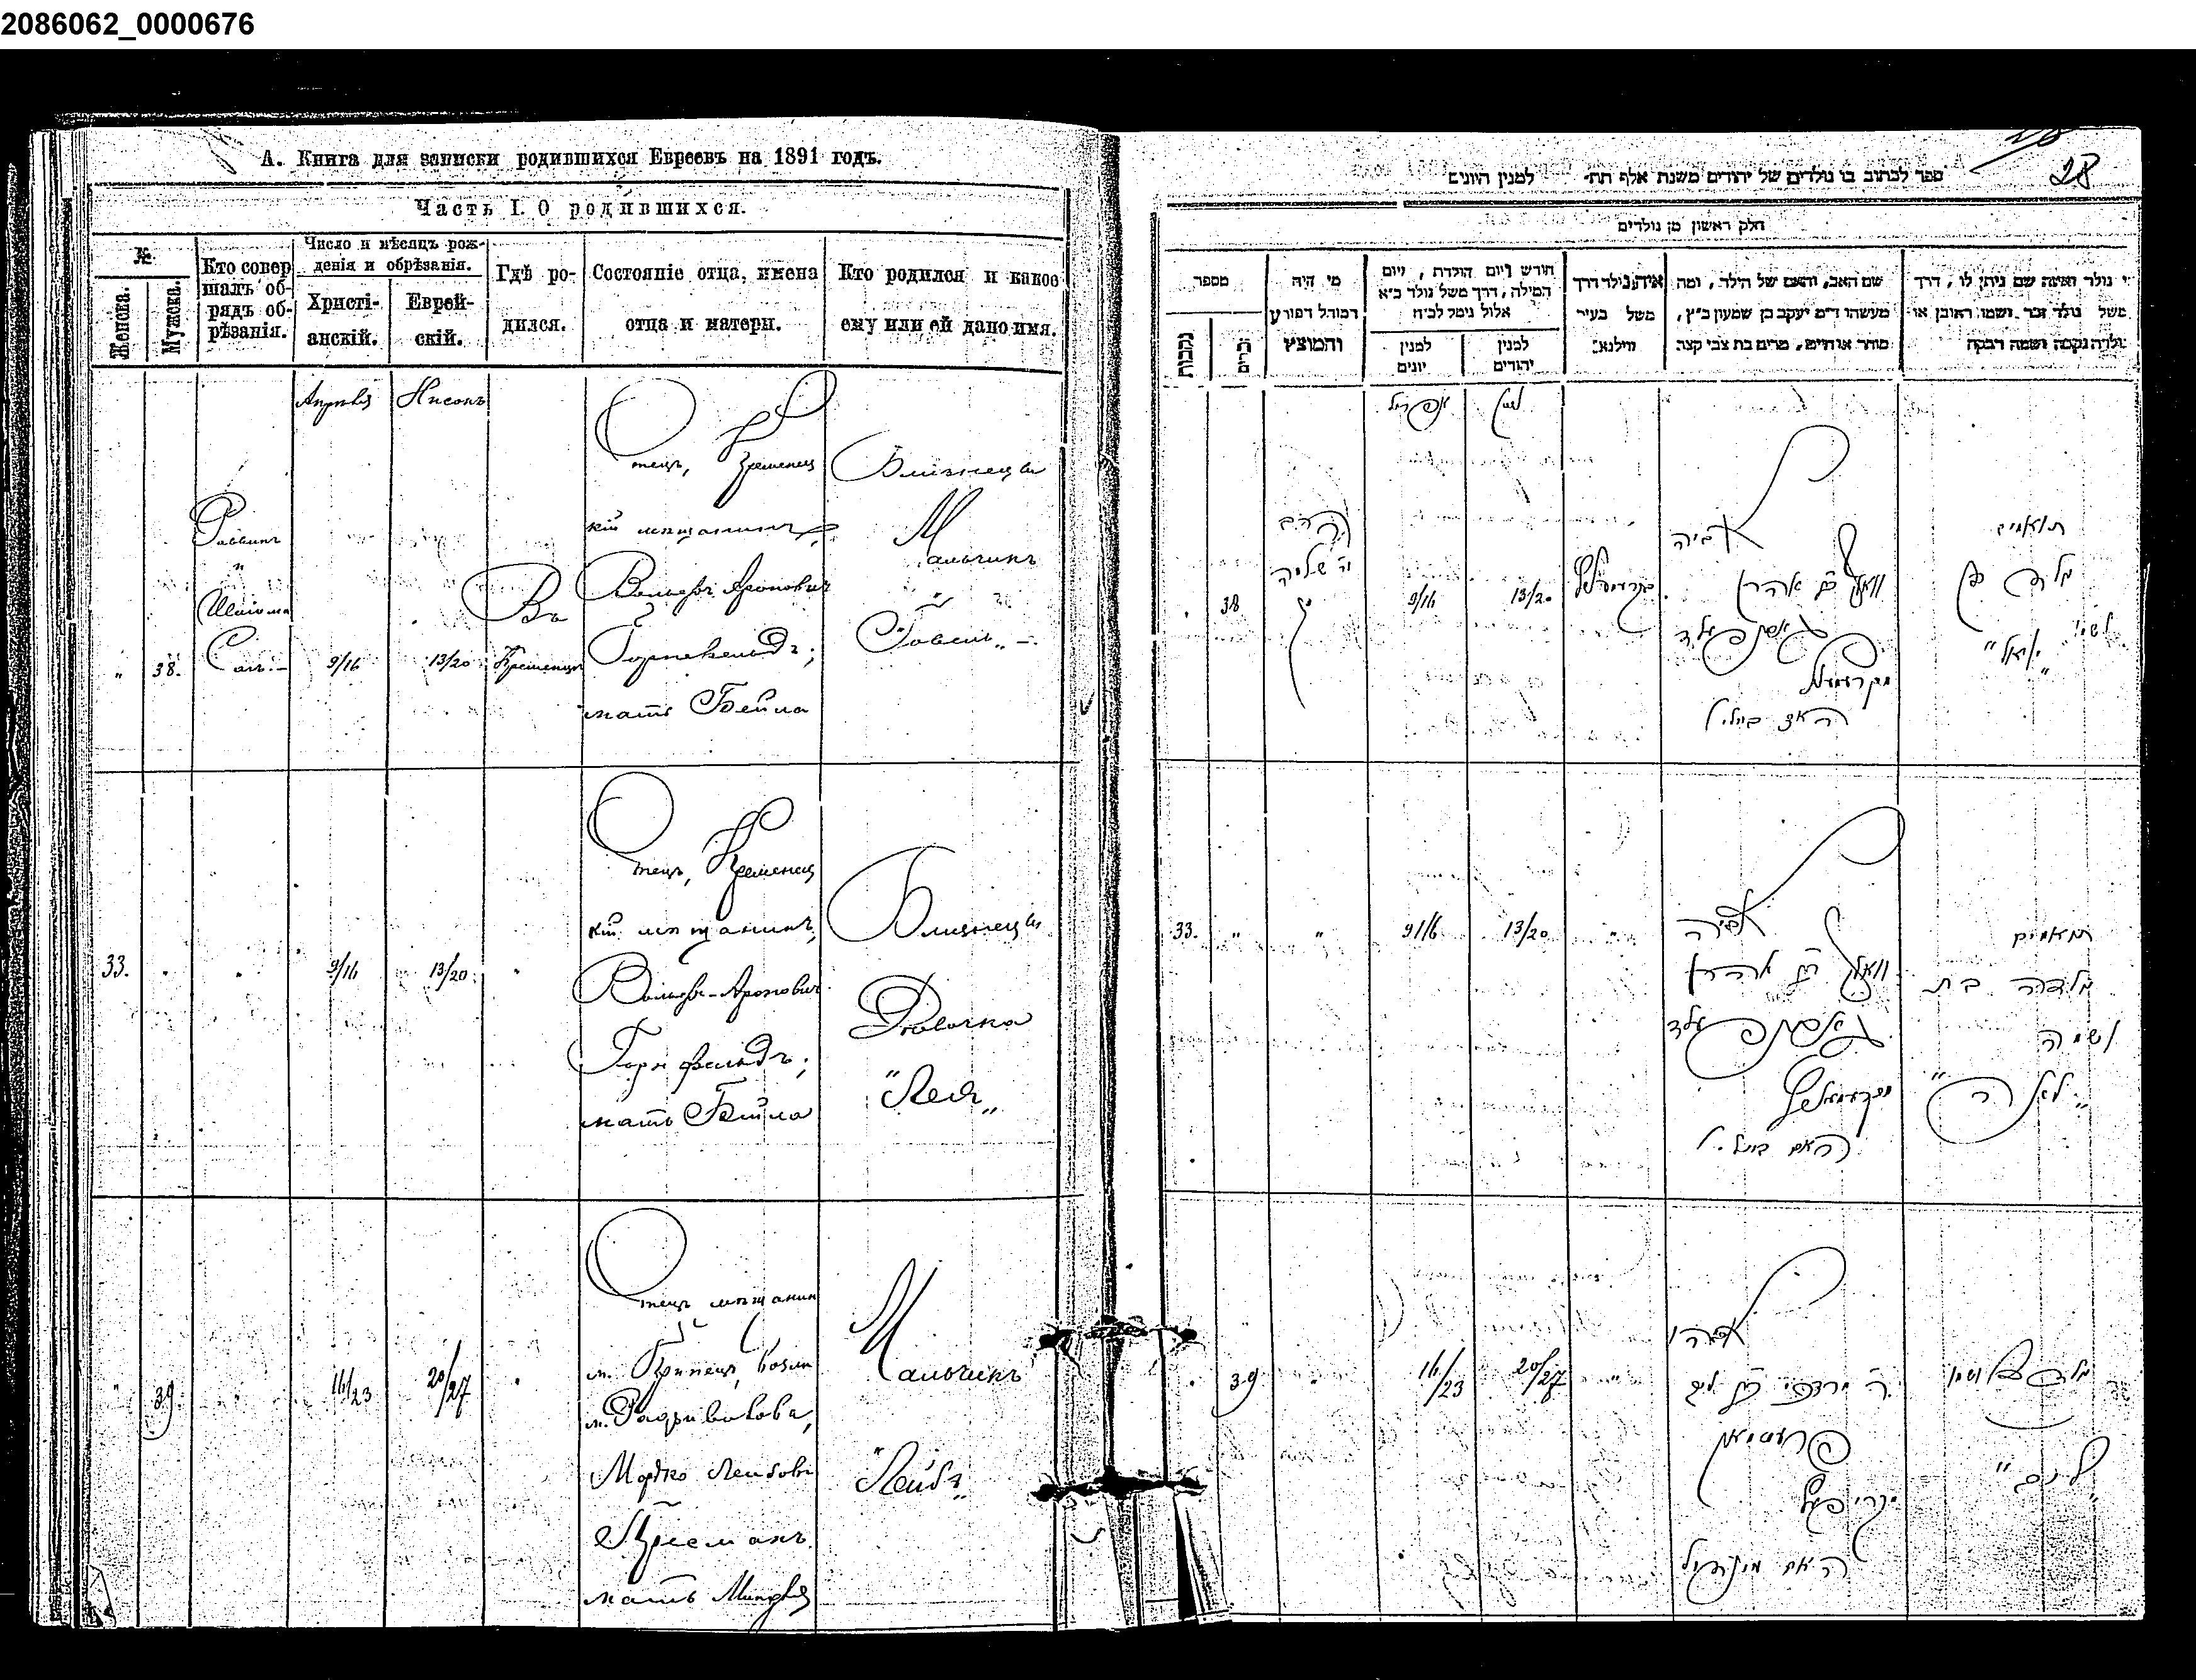 2086062_0000676
А. Книга для записки родившихся Евреевъ на 1891 годъ.
Часть I. О родившихся.
№
Женска.
Мужска.
Кто совер
шалъ об-
рядъ об-
рѣзанія.
Число и мѣсяцъ рож-
денія и обрѣзанія.
Христі-
анскій.
Еврей-
скій.
Гдѣ ро-
дился.
Состояніе отца, имена
отца и матери.
Кто родился и какое
ему или ей дано имя.
Апрѣль
Нисонъ
"
38.
Раввинъ
и
Шлiома
9/16
13/20
Въ
Кременцѣ
Отецъ, Кременец
кій мѣщанинъ,
Вольфъ Ароновичъ
Горнфельдъ;
мать Бейла
Близнецы
Мальчикъ
33.
"
"
9/16
13/20
"
Отецъ, Кременец
кій мѣщанинъ,
Вольфъ-Ароновичъ
Горнфельдъ;
мать Бейла
Близнецы
Дѣвочка
"Лея"
"
39.
"
16/23
20/27
"
Отецъ мѣщанин
м.
м. Радзивилова,
Мордко Лейбовъ
мать Миндля
Мальчикъ
"Лейбъ"
28
ספר לכתוב בו נולדים של יהודים משנת אלף תת' למנין היונים
חלק ראשון מן נולדים
מספר
נקבות
זכרים
מי היה
המוהל הפורע
והמוצץ
חודש ויום הולדת, ויום
המילה, דרך משל נולד כ"א
אלול נימל לכ"ח
למנין
יונים
למנין
יהודים
איה נולד דרך
משל בעיר
ווילנא:
שם האב, והאם של הילד, ומה
מעשהו ד"מ יעקב בן שמעון כ"ץ,
סוחר או חייט, מרים בת צבי קצב.
מי נולד ואיזה שם ניתן לו, דרך
משל נולד זכר ושמו ראובן או
נולדה נקבה ושמה רבקה
אפריל
ניסן
38
הרב
ור' שלמה
9/16
13/20
קרעמעניץ
אביה
וואלף בן אהרן
גארנפעלד
מקרעמעניץ
האם ביילא
תואמים
נולד בן
ושמו
"יואל"
33.
"
"
9/16
13/20
"
אביה
וואלף בן אהרן
גארנפעלד
מקרעמעניץ
האם ביילא
תואמים
נולדה בת
ושמה
"לאה"
39
"
16/23
20/27
"
אביהו
ר' מרדכי בן ליב
האם מינדיל
נולד בן ושמו
"ליב"